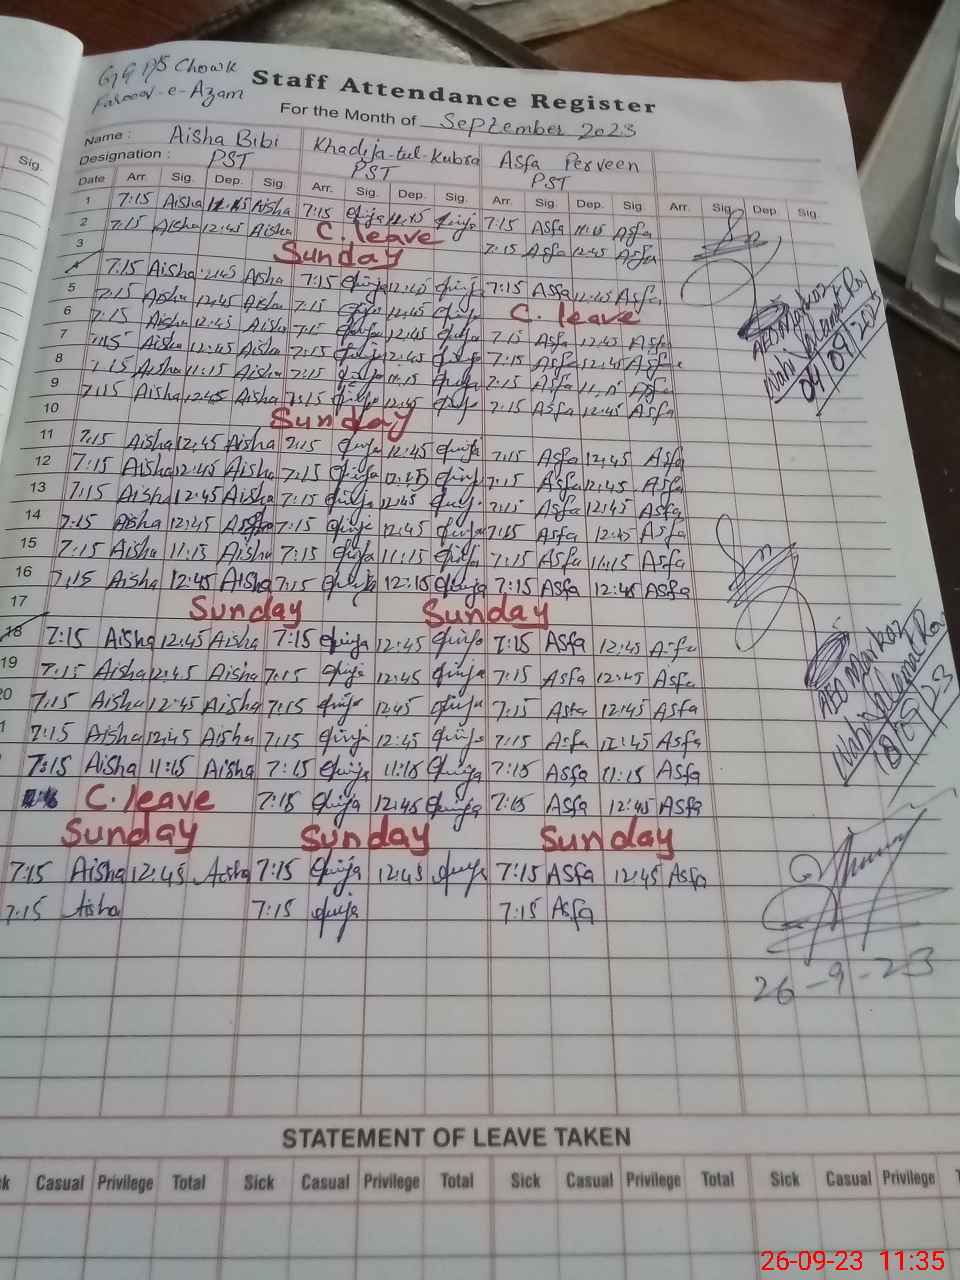 G,G P/S Chowk
Farooq-e-Azam
Staff Attendance Register
For the Month of September 2023
Sig.
Name : Aisha Bibi Khadija-tul-Kubra Asfa Perveen
Designation : PST PST PST
Date Arr. Sig. Dep. Sig. Arr. Sig. Dep. Sig. Arr. Sig. Dep. Sig. Arr. Sig. Dep. Sig.
1 7:15 Aisha 11:15 Aisha 7:15 11:15 7:15 Asfa 11:15 Asfa
2 7:15 Aisha 12:45 Aisha C. leave 7:15 Asfa 12:45 Asfa
3 Sunday
7:15 Aisha 12:45 Aisha 7:15 12:45 7:15 Asfa 12:45 Asfa
5 7:15 Aisha 12:45 Aisha 7:15 12:45 C. leave
6 7:15 Aisha 12:45 Aisha 7:15 12:45 7:15 Asfa 12:45 Asfa
7 7:15 Aisha 12:45 Aisha 7:15 12:45 7:15 Asfa 12:45 Asfa
8 7:15 Aisha 11:15 Aisha 7:15 11:15 7:15 Asfa 11:15 Asfa
9 7:15 Aisha 12:45 Aisha 7:15 12:45 7:15 Asfa 12:45 Asfa
10 Sunday
11 7:15 Aisha 12:45 Aisha 7:15 12:45 7:15 Asfa 12:45 Asfa
12 7:15 Aisha 12:45 Aisha 7:15 12:45 7:15 Asfa 12:45 Asfa
13 7:15 Aisha 12:45 Aisha 7:15 12:45 7:15 Asfa 12:45 Asfa
14 7:15 Aisha 12:45 7:15 12:45 7:15 Asfa 12:45 Asfa
15 7:15 Aisha 11:15 Aisha 7:15 11:15 7:15 Asfa 11:15 Asfa
16 7:15 Aisha 12:45 Aisha 7:15 7:15 Asfa 12:45 Asfa
17 Sunday Sunday
18 7:15 Aisha 12:45 Aisha 7:15 12:45 7:15 Asfa 12:45 Asfa
19 7:15 Aisha 12:45 Aisha 7:15 12:45 7:15 Asfa 12:45 Asfa
20 7:15 Aisha 12:45 Aisha 7:15 12:45 7:15 Asfa 12:45 Asfa
1 7:15 Aisha 12:45 Aisha 7:15 12:45 7:15 Asfa 12:45 Asfa
7:15 Aisha 11:15 Aisha 7:15 11:15 7:15 Asfa 11:15 Asfa
C. leave 7:15 12:45 7:15 Asfa 12:45 Asfa
Sunday Sunday Sunday
7:15 Aisha 12:45 Aisha 7:15 12:45 7:15 Asfa 12:45 Asfa
7:15 Aisha 7:15 7:15 Asfa
AEO Markaz
04/09/2023
AEO Markaz
26-9-23
STATEMENT OF LEAVE TAKEN
Casual Privilege Total Sick Casual Privilege Total Sick Casual Privilege Total Sick Casual Privilege
26-09-23 11:35